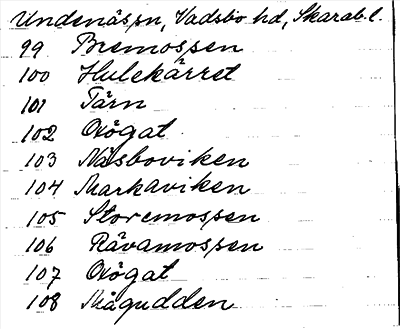 Undenäs sn, Vadsbo hd, Skarab. l.
99 Bremossen
100 Hulekärret
101 Tärn
102 Högat
103 Näsboviken
104 Markaviken
105 Storemossen
106 Rävamossen
107 Högat
108 Mågudden